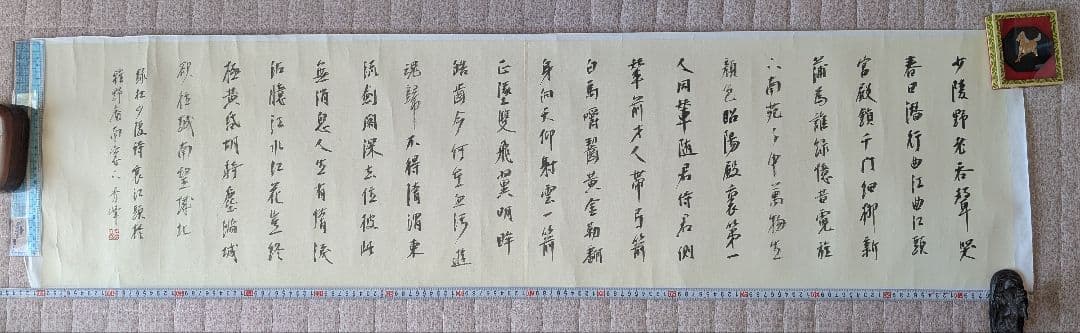 少陵野老吞聲哭
春日潛行曲江曲江頭
宮殿鎖千門細柳新
蒲為誰綠憶昔霓旌
下南苑苑中萬物生
顏色昭陽殿裏第一
人同輦隨君侍君側
輦前才人帶弓箭
白馬嚼齧黃金勒翻
身向天仰射雲一箭
正墜雙飛翼明眸
皓齒今何在血污遊
魂歸不得清渭東
流劍閣深去住彼此
無消息人生有情淚
沾臆江水江花豈終
極黃昏胡騎塵滿城
欲往城南望城北
錄杜少陵詩哀江頭於